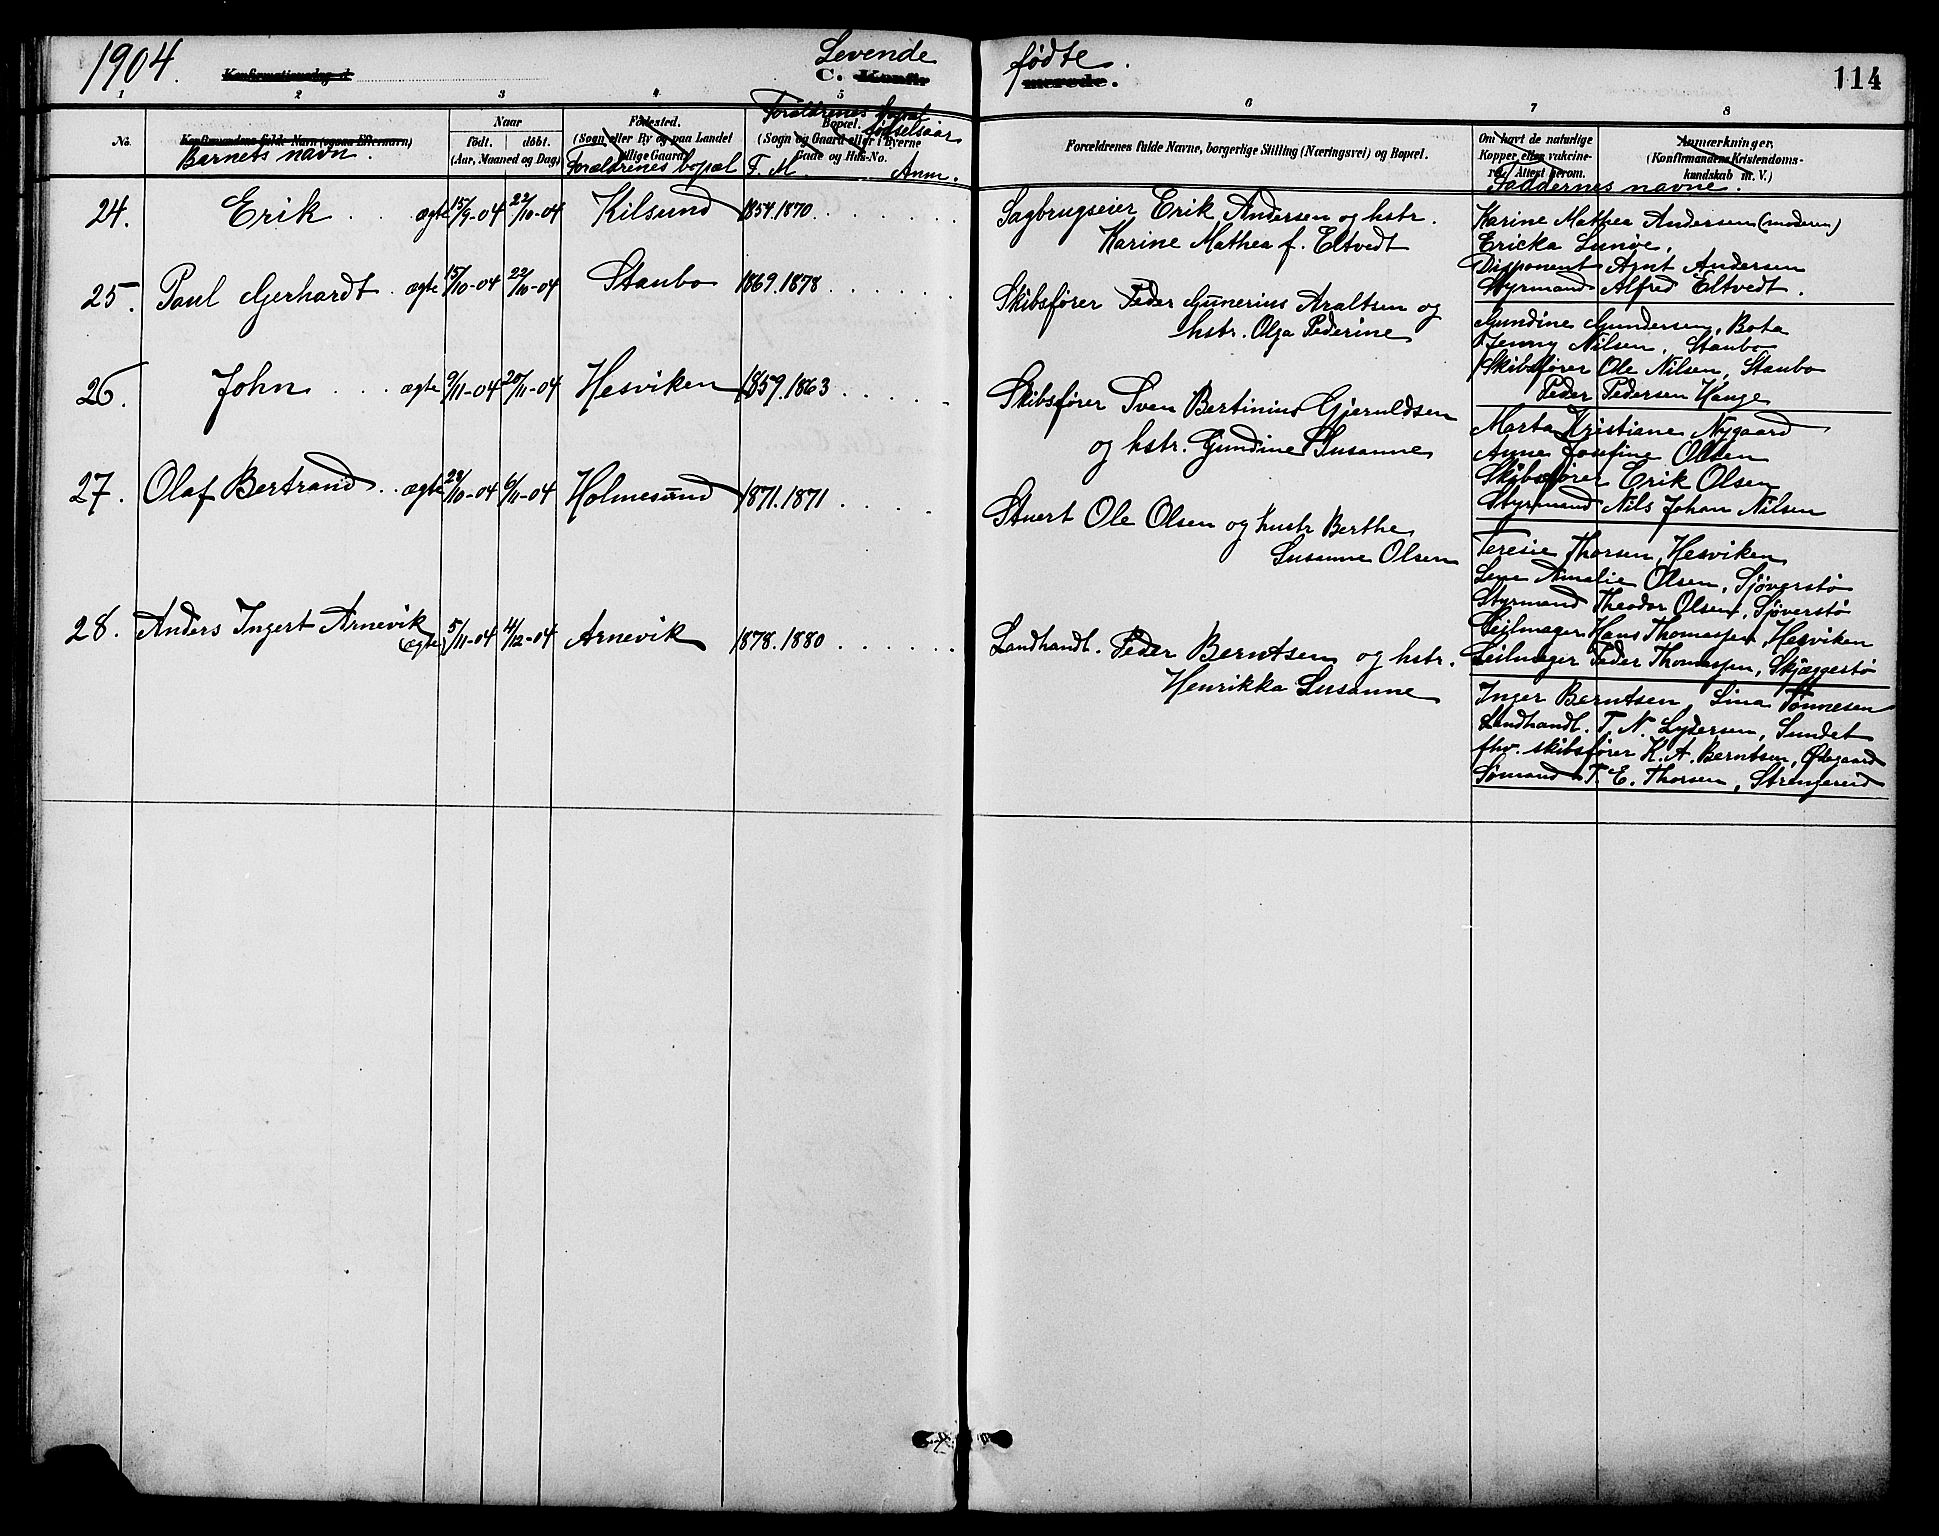 1904.
Konfirmationsdag d
Levende
C. Konfir
fødte.
merede.
114
1 2 3 4 5 6 7 8
No.
Konfirmandens fulde Navn (ogsaa Efternavn)
Barnets navn.
Naar
født. døbt.
(Aar, Maaned og Dag)
Fødested.
(Sogn eller By og paa Landet
tillige Gaard)
Forældrenes bopæl
Forældrenes
fødselsaar
Bopæl.
(Sogn og Gaard eller i Byerne
Gade og Hus-No.
F. M. Anm.
Forældrenes fulde Navne, borgerlige Stilling (Næringsvei) og Bopæl.
Om havt de naturlige
Kopper eller vakcine-
ret. Attest herom.
Anmærkninger,
(Konfirmandens Kristendoms-
kundskab m. V.)
Faddernes navne.
24. Erik . . ægte 15/9-04 22/10-04 Kilsund 1854.1870. . . . . . .
Sagbrugseier Erik Andersen og hstr.
Karine Mathea f. Eltvedt
Karine Mathea Andersen (moderen)
Ericka Lunøe,
Disponent Arnt Andersen
Styrmand Alfred Eltvedt.
25. Paul Gerhardt . ægte 15/10-04 22/10-04 Staubo 1869.1878 . . . . . .
Skibsfører Peder Gunerius Araltsen og
hstr. Olga Pederine
Gundine Gundersen, Bota
Jenny Nilsen, Staubo
Skibsfører Ole Nilsen, Staubo
Peder Pedersen Hauge
26. John . . . ægte 9/11-04 20/11-04 Hesviken 1859.1863 . . . . .
Skibsfører Sven Bertinius Gjeruldsen
og hstr. Gundine Susanne
Marta Kristiane Nygaard
Anne Josefine Olsen
Skibsfører Erik Olsen
Styrmand Nils Johan Nilsen
27. Olaf Bertrand . . ægte /10-04 6/11-04 Holmesund 1871.1871 . . . .
Stuert Ole Olsen og hustr Berthe
Susanne Olsen
Teresie Thorsen, Hesviken
Lene Amalie Olsen, Sjøverstø
Styrmand Theodor Olsen, Sjøverstø
Seilmager Hans Thomassen, Hesviken
Seilmager Peder Thomassen, Skjæggestø
28. Anders Ingert Arnevik
ægte 5/11-04 4/12-04 Arnevik 1878.1880 . . . . . .
Landhandl. Peder Berntsen og hstr.
Henrikka Susanne
Inger Berntsen, Lina Tønnesen
Landhandl. T. N. Lydersen, Sundet
fhv. skibsfører K. A. Berntsen, Ødegaard
Sømand T. E. Thorsen, Strengereid